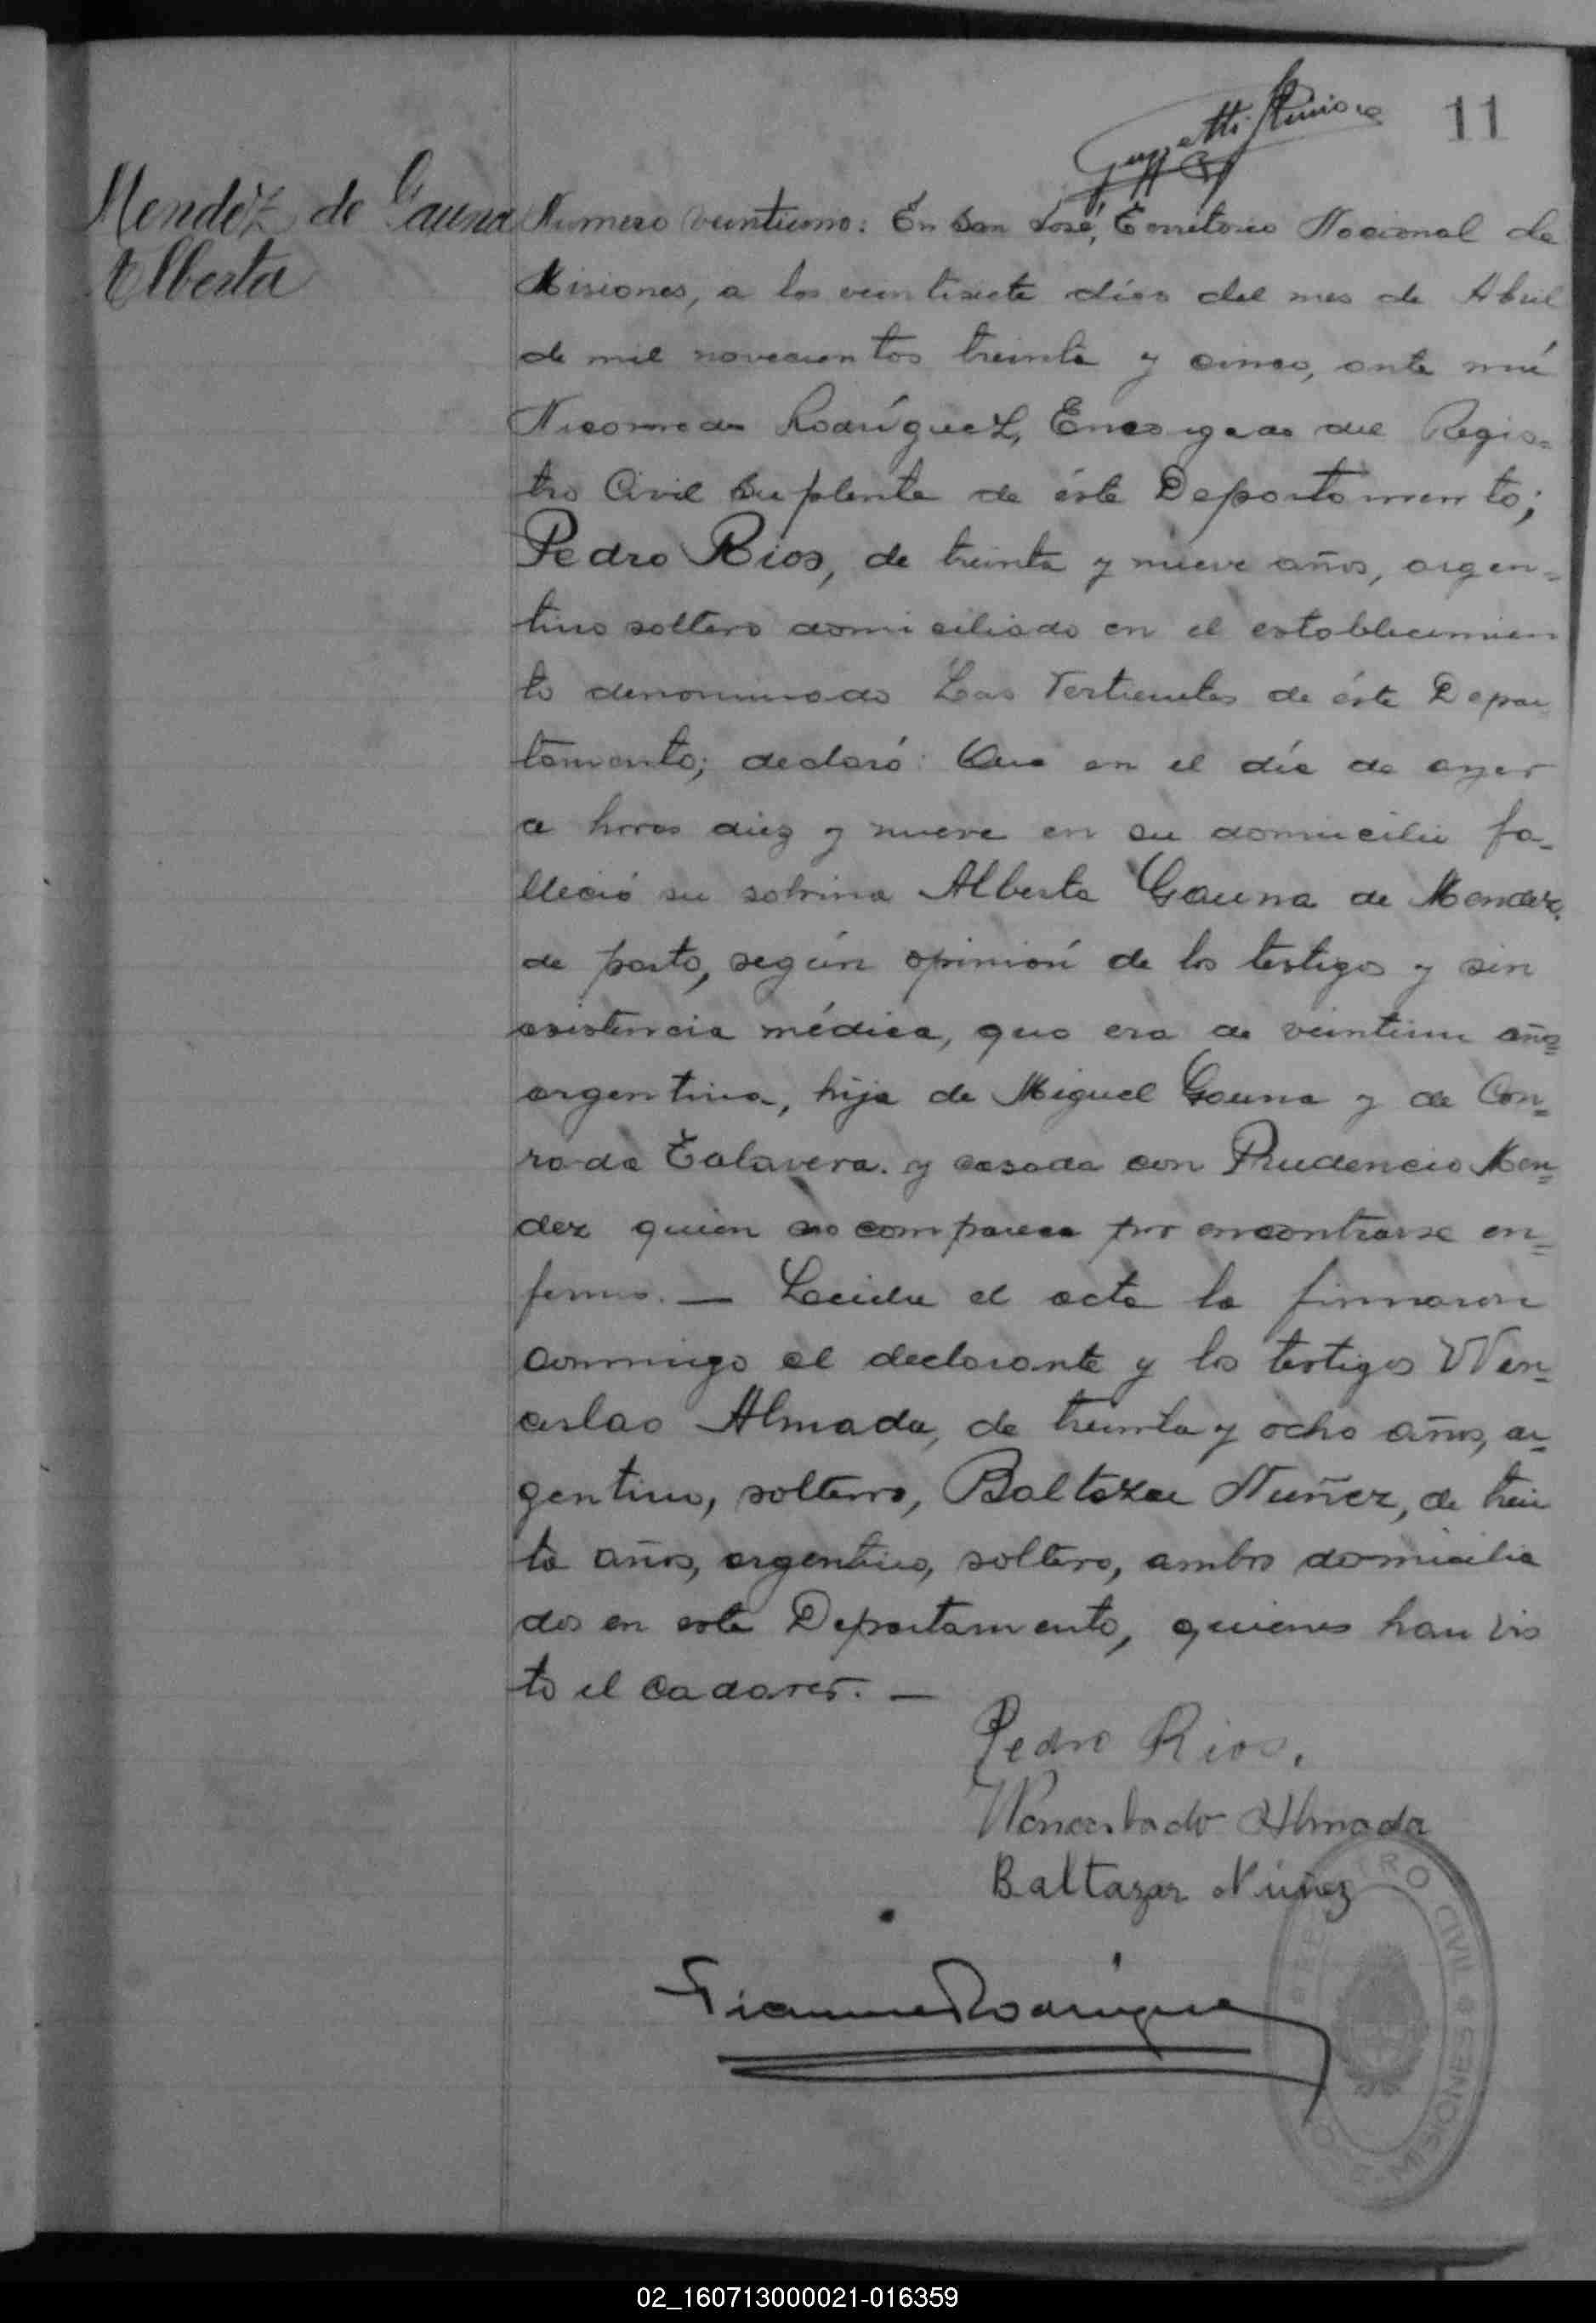 11
Mendéz de Gauna
Alberta
Numero veintiuno: En San José, Territorio Nacional de
Misiones, a los veintisiete días del mes de Abril
de mil novecientos treinta y cinco, ante mí
Nicomedes Rodríguez, Encargado del Regis-
tro Civil Suplente de éste Departamento;
Pedro Rios, de treinta y nueve años, argen-
tino soltero domiciliado en el establecimien
to denominado Las Vertientes de éste Depar
tamento; declaró: Que en el día de ayer
a horas diez y nueve en su domicilio fa-
lleció su sobrina Alberta Gauna de Mendez,
de parto, según opinión de los testigos y sin
asistencia médica, que era de veintiun años
argentina, hija de Miguel Gauna y de Con-
rada Talavera. y casada con Prudencio Men-
dez quien no comparece por encontrarse en-
fermo. — Leida el acta la firmaron
conmigo el declarante y los testigos Wen-
ceslao Almada, de treinta y ocho años, ar-
gentino, soltero, Baltazar Nuñez, de trein
ta años, argentino, soltero, ambos domicilia
dos en este Departamento, quienes han vis
to el cadaver. —
Pedro Rios.
Almada
Baltazar Núñez
Rodriguez
REGISTRO CIVIL
MISIONES
02_160713000021-016359